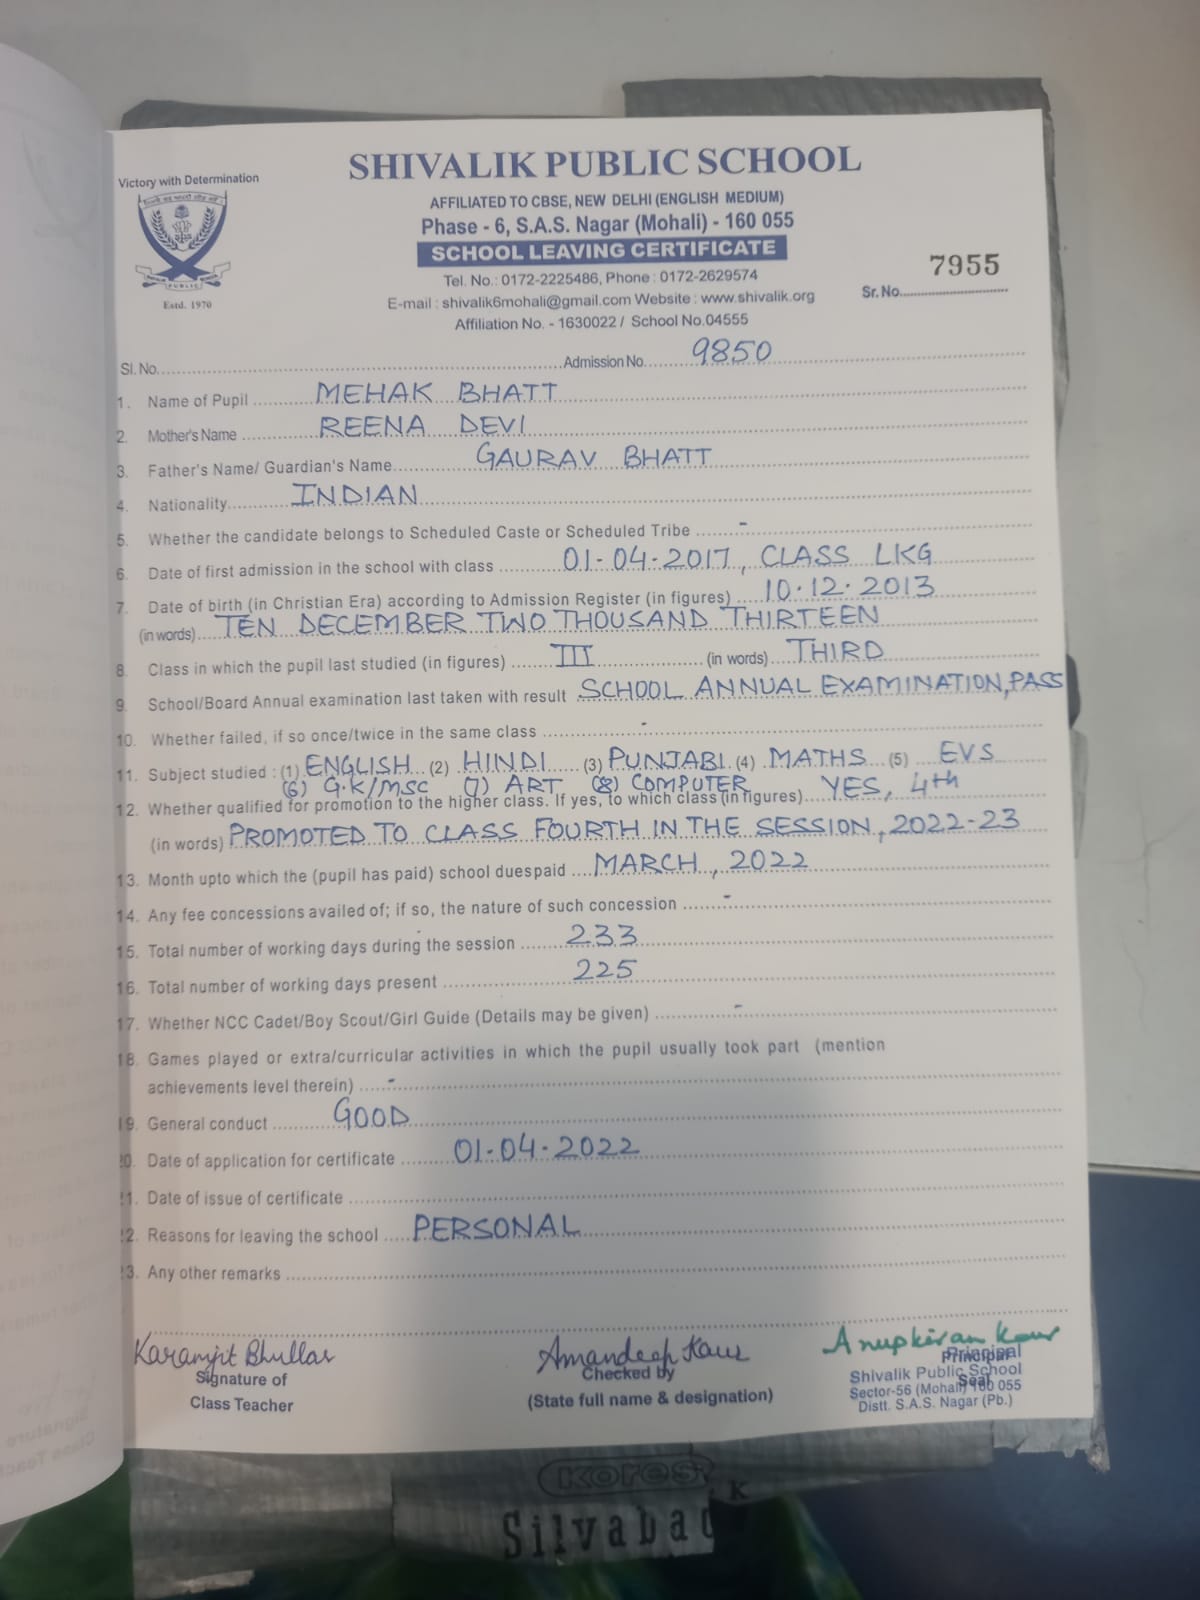 SHIVALIK PUBLIC SCHOOL
Victory with Determination
AFFILIATED TO CBSE, NEW DELHI (ENGLISH MEDIUM)
Phase - 6, S.A.S. Nagar (Mohali) - 160 055
SCHOOL LEAVING CERTIFICATE
PUBLIC
Estd. 1970
Tel. No.: 0172-2225486, Phone : 0172-2629574
E-mail : shivalik6mohali@gmail.com Website : www.shivalik.org
Affiliation No. - 1630022 / School No.04555
7955
Sr.No.
Sl. No. Admission No. 9850
1. Name of Pupil MEHAK BHATT
2. Mother's Name REENA DEVI
3. Father's Name/ Guardian's Name GAURAV BHATT
4. Nationality INDIAN
5. Whether the candidate belongs to Scheduled Caste or Scheduled Tribe -
6. Date of first admission in the school with class 01-04-2017, CLASS LKG
7. Date of birth (in Christian Era) according to Admission Register (in figures) 10.12.2013
(in words) TEN DECEMBER TWO THOUSAND THIRTEEN
8. Class in which the pupil last studied (in figures) III (in words) THIRD
9. School/Board Annual examination last taken with result SCHOOL ANNUAL EXAMINATION, PASS
10. Whether failed, if so once/twice in the same class -
11. Subject studied : (1) ENGLISH (2) HINDI (3) PUNJABI (4) MATHS (5) EVS
(6) G.K/MSC (7) ART (8) COMPUTER
12. Whether qualified for promotion to the higher class. If yes, to which class (in figures) YES, 4th
(in words) PROMOTED TO CLASS FOURTH IN THE SESSION, 2022-23
13. Month upto which the (pupil has paid) school duespaid MARCH, 2022
14. Any fee concessions availed of; if so, the nature of such concession -
15. Total number of working days during the session 233
16. Total number of working days present 225
17. Whether NCC Cadet/Boy Scout/Girl Guide (Details may be given) -
18. Games played or extra/curricular activities in which the pupil usually took part (mention
achievements level therein) -
19. General conduct GOOD
20. Date of application for certificate 01-04-2022
21. Date of issue of certificate
22. Reasons for leaving the school PERSONAL
23. Any other remarks
Karamjit Bhullar Amandeep Kaur Anupkiran Kaur
Signature of
Class Teacher
Checked by
(State full name & designation)
Principal
Seal
Principal
Shivalik Public School
Sector-56 (Mohali) 160 055
Distt. S.A.S. Nagar (Pb.)
Kores